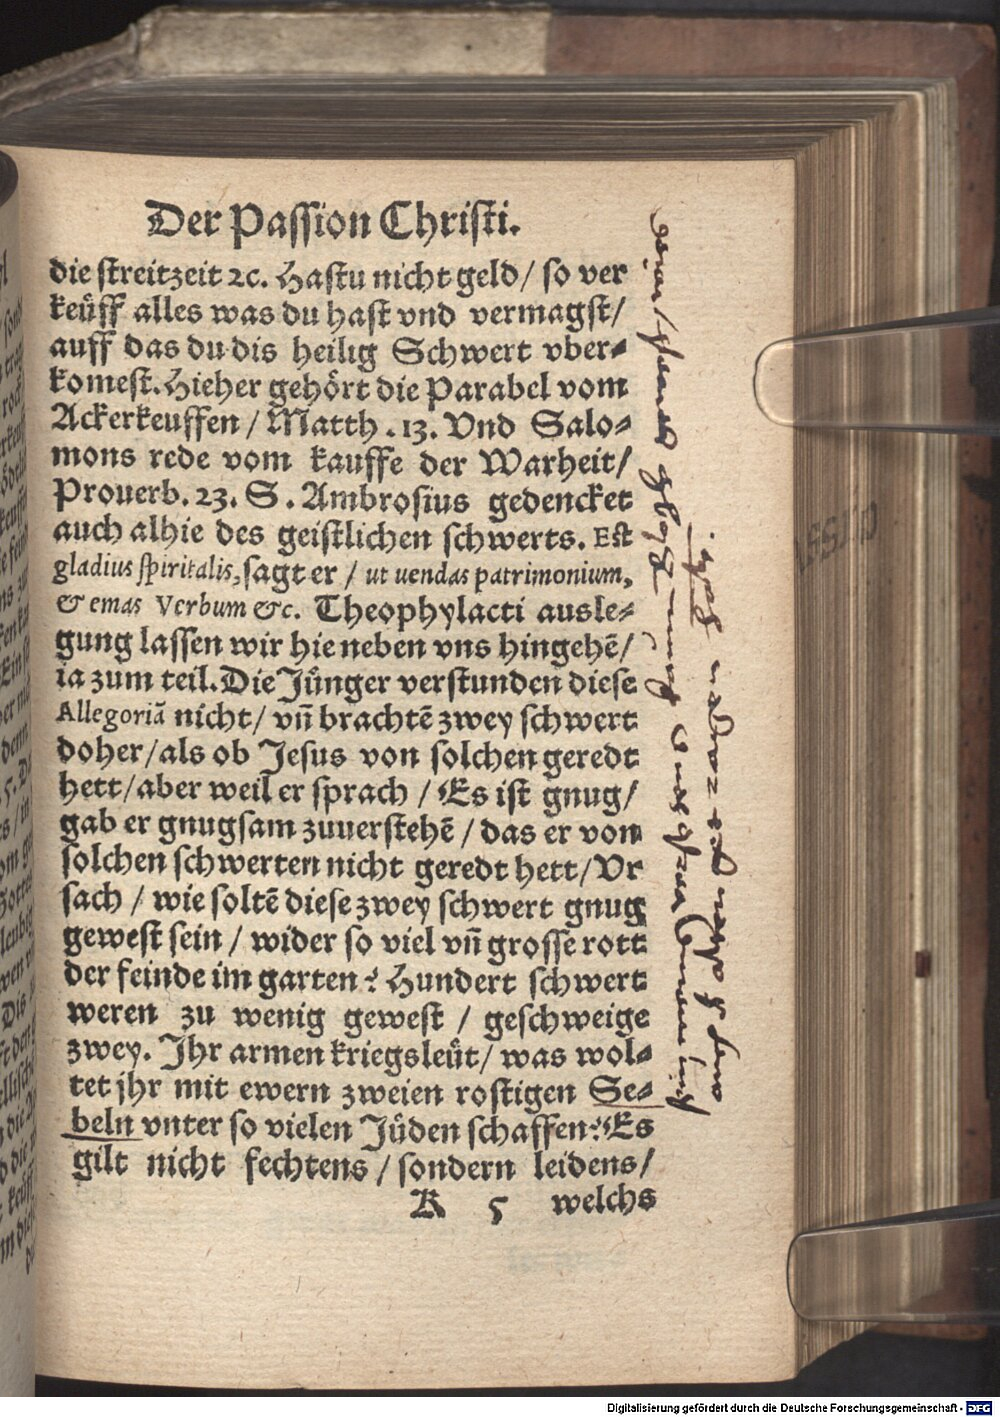 Der Passion Christi.
die streitzeit ꝛc. Hastu nicht geld/ so ver
keüff alles was du hast vnd vermagst/
auff das du dis heilig Schwert vber⸗
komest. Hieher gehört die Parabel vom
Ackerkeuffen / Matth . 13. Vnd Salo⸗
mons rede vom kauffe der Warheit/
Prouerb. 23. S. Ambrosius gedencket
auch alhie des geistlichen schwerts. Est
gladius spiritalis, sagt er / ut uendas patrimonium,
& emas Verbum &c. Theophylacti ausle⸗
gung lassen wir hie neben vns hingehē/
ia zum teil. Die Jünger verstunden diese
Allegoriā nicht/ vn̄ brachtē zwey schwert
doher/als ob Jesus von solchen geredt
hett/aber weil er sprach / Es ist gnug/
gab er gnugsam zuuerstehē / das er von
solchen schwerten nicht geredt hett/ Vr
sach / wie soltē diese zwey schwert gnug
gewest sein / wider so viel vn̄ grosse rott
der feinde im garten? Hundert schwert
weren zu wenig gewest / geschweige
zwey. Ihr armen kriegsleüt/ was wol⸗
tet jhr mit ewern zweien rostigen Se⸗
beln vnter so vielen Jüden schaffen? Es
gilt nicht fechtens / sondern leidens/
K 5 welchs
Digitalisierung gefördert durch die Deutsche Forschungsgemeinschaft - DFG